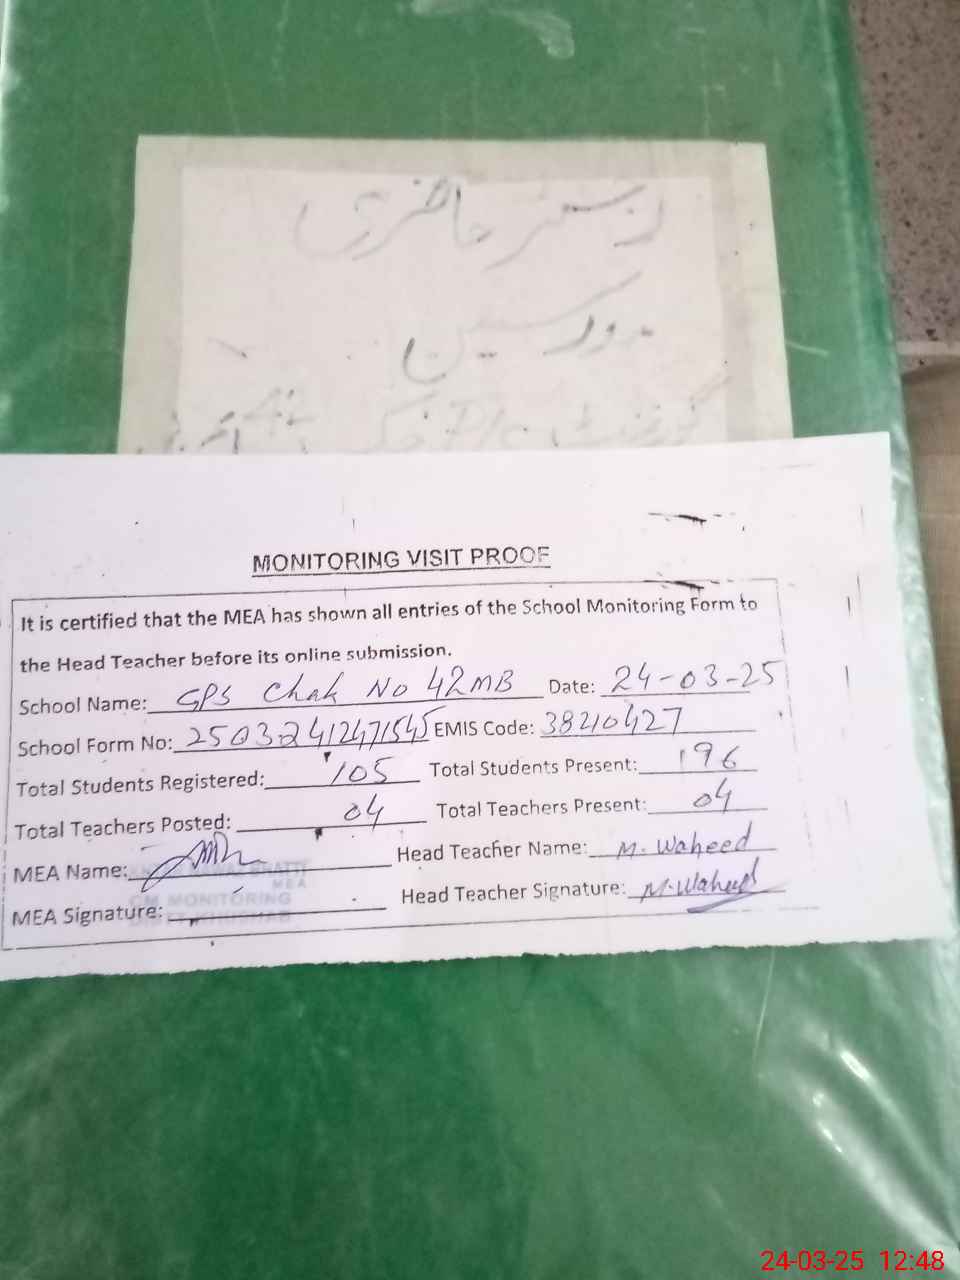 رجسٹر حاضری
مدرسین
گورنمنٹ P/S چک 42
MONITORING VISIT PROOF
It is certified that the MEA has shown all entries of the School Monitoring Form to
the Head Teacher before its online submission.
School Name: GPS Chak No 42MB Date: 24-03-25
School Form No: 25032412471545 EMIS Code: 38210427
Total Students Registered: 105 Total Students Present: 196
Total Teachers Posted: 04 Total Teachers Present: 04
MEA Name: Head Teacher Name: M. Waheed
BHATTI
MEA
CM MONITORING
MEA Signature: Head Teacher Signature: M. Waheed
DISTT KHUSHAB
24-03-25 12:48